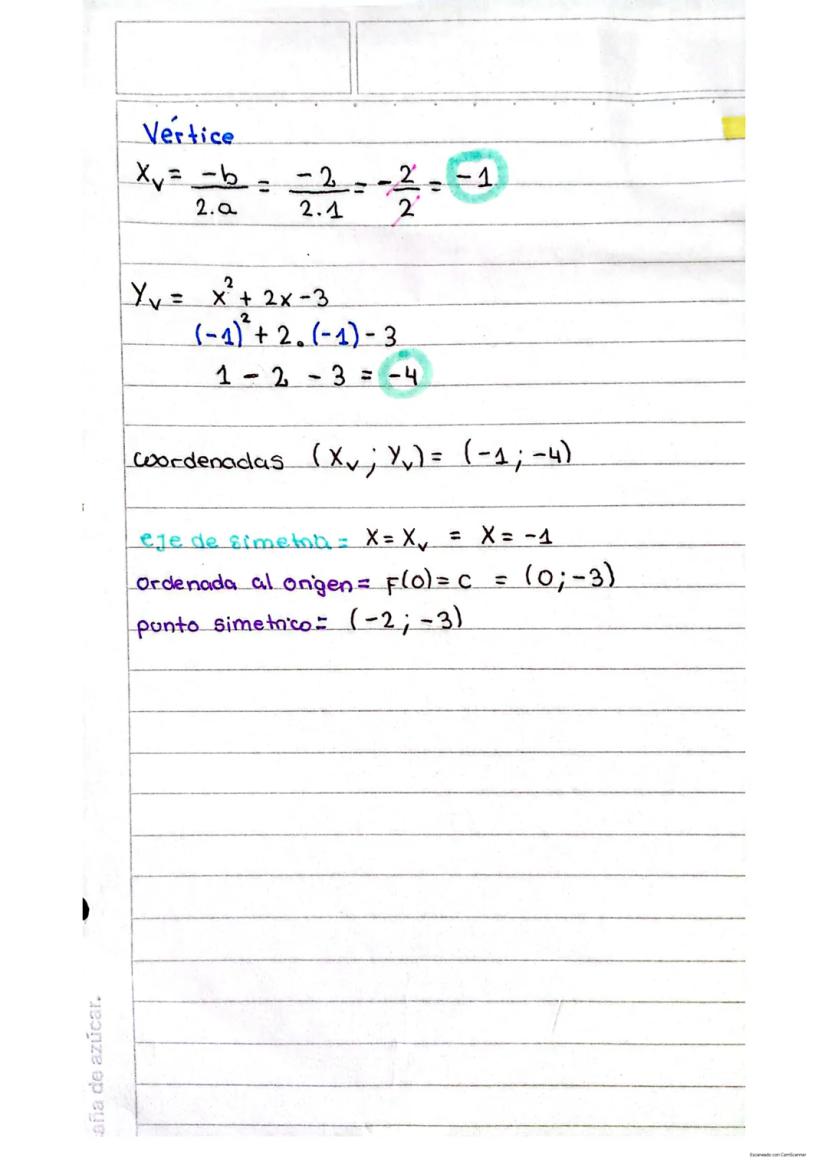 Vértice
Xv = -b/2.a = -2/2.1 = -2/2 = -1
Yv = x² + 2x - 3
(-1)² + 2.(-1) - 3
1 - 2 - 3 = -4
coordenadas (Xv ; Yv) = (-1 ; -4)
eje de simetria = X = Xv = X = -1
ordenada al origen = F(0) = C = (0 ; -3)
punto simetrico = (-2 ; -3)
aña de azúcar.
Escaneado con CamScanner